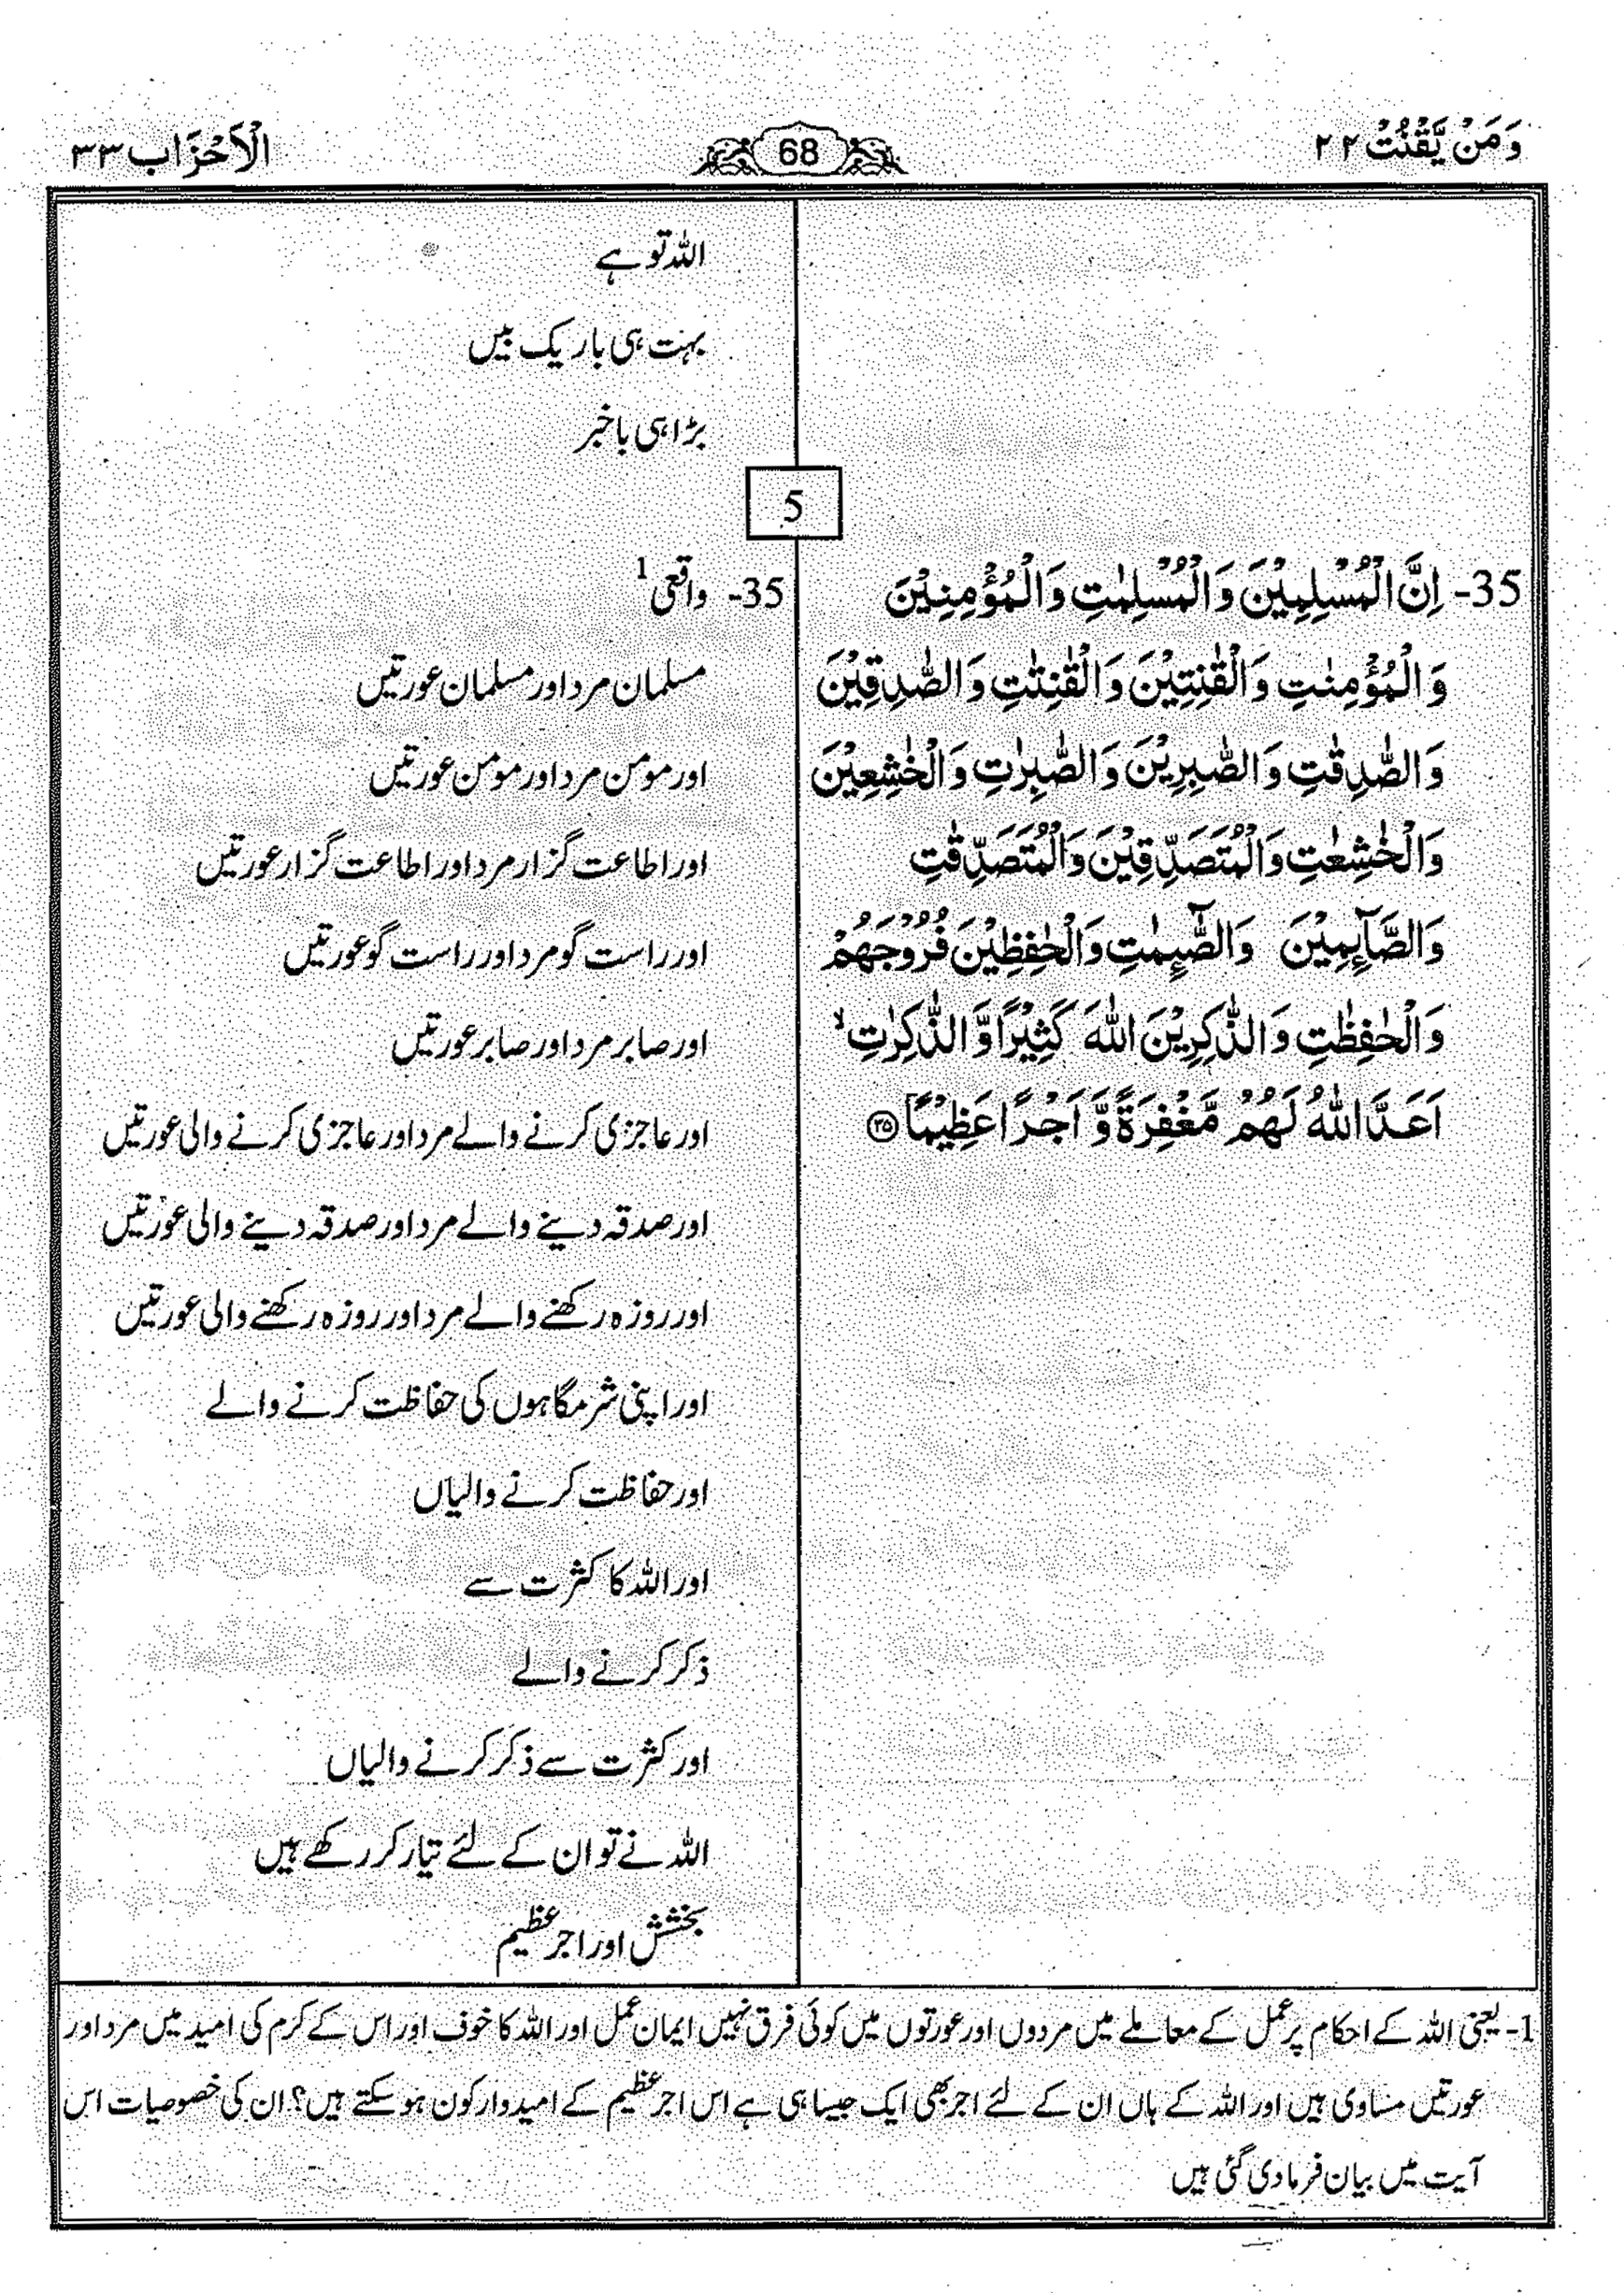 وَمَنْ يَّقْنُتْ ۲۲
68
الْاَحْزَاب ۳۳
اللہ تو ہے
بہت ہی باریک بیں
بڑا ہی باخبر
5
35- اِنَّ الْمُسْلِمِيْنَ وَالْمُسْلِمٰتِ وَالْمُؤْمِنِيْنَ
وَالْمُؤْمِنٰتِ وَالْقٰنِتِيْنَ وَالْقٰنِتٰتِ وَالصّٰدِقِيْنَ
وَالصّٰدِقٰتِ وَالصّٰبِرِيْنَ وَالصّٰبِرٰتِ وَالْخٰشِعِيْنَ
وَالْخٰشِعٰتِ وَالْمُتَصَدِّقِيْنَ وَالْمُتَصَدِّقٰتِ
وَالصَّآىِٕمِيْنَ وَالصّٰٓىِٕمٰتِ وَالْحٰفِظِيْنَ فُرُوْجَهُمْ
وَالْحٰفِظٰتِ وَالذّٰكِرِيْنَ اللّٰهَ كَثِيْرًا وَّالذّٰكِرٰتِ ۙ
اَعَدَّ اللّٰهُ لَهُمْ مَّغْفِرَةً وَّ اَجْرًا عَظِيْمًا ۝۳۵
35- واقعی 1
مسلمان مرد اور مسلمان عورتیں
اور مومن مرد اور مومن عورتیں
اور اطاعت گزار مرد اور اطاعت گزار عورتیں
اور راست گو مرد اور راست گو عورتیں
اور صابر مرد اور صابر عورتیں
اور عاجزی کرنے والے مرد اور عاجزی کرنے والی عورتیں
اور صدقہ دینے والے مرد اور صدقہ دینے والی عورتیں
اور روزہ رکھنے والے مرد اور روزہ رکھنے والی عورتیں
اور اپنی شرمگاہوں کی حفاظت کرنے والے
اور حفاظت کرنے والیاں
اور اللہ کا کثرت سے
ذکر کرنے والے
اور کثرت سے ذکر کرنے والیاں
اللہ نے تو ان کے لئے تیار کر رکھے ہیں
بخشش اور اجر عظیم
1- یعنی اللہ کے احکام پر عمل کے معاملے میں مردوں اور عورتوں میں کوئی فرق نہیں ایمان عمل اور اللہ کا خوف اور اس کے کرم کی امید میں مرد اور
عورتیں مساوی ہیں اور اللہ کے ہاں ان کے لئے اجر بھی ایک جیسا ہی ہے اس اجر عظیم کے امیدوار کون ہو سکتے ہیں؟ ان کی خصوصیات اس
آیت میں بیان فرمادی گئی ہیں